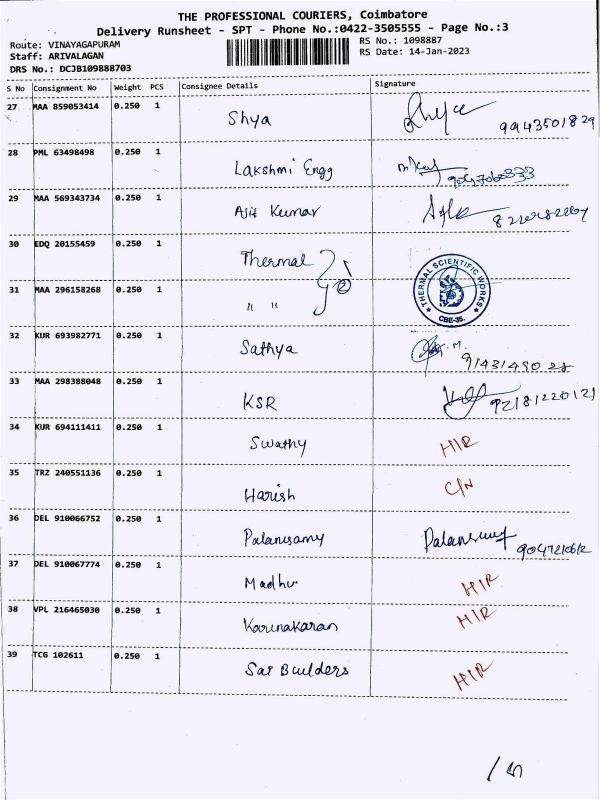 THE PROFESSIONAL COURIERS, Coimbatore
Delivery Runsheet - SPT - Phone No.:0422-3505555 - Page No.:3
Route: VINAYAGAPURAM
RS No.: 1098887
Staff: ARIVALAGAN
RS Date: 14-Jan-2023
DRS No.: DCJB109888703
S No Consignment No Weight PCS Consignee Details Signature
27 MAA 859053414 0.250 1 Shya 9943501829
28 PML 63498498 0.250 1 Lakshmi Engg
29 MAA 569343734 0.250 1 Ajit Kumar
30 EDQ 20155459 0.250 1 Thermal
31 MAA 296158268 0.250 1 " " ②
THERMAL SCIENTIFIC WORKS
CBE-35.
32 KUR 693982771 0.250 1 Sathya
33 MAA 298388048 0.250 1 KSR
34 KUR 694111411 0.250 1 Swathy HIR
35 TRZ 240551136 0.250 1 Harish C/N
36 DEL 910066752 0.250 1 Palanisamy
37 DEL 910067774 0.250 1 Madhu HIR
38 VPL 216465030 0.250 1 Karunakaran HIR
39 TCG 102611 0.250 1 Sai Builders HIR